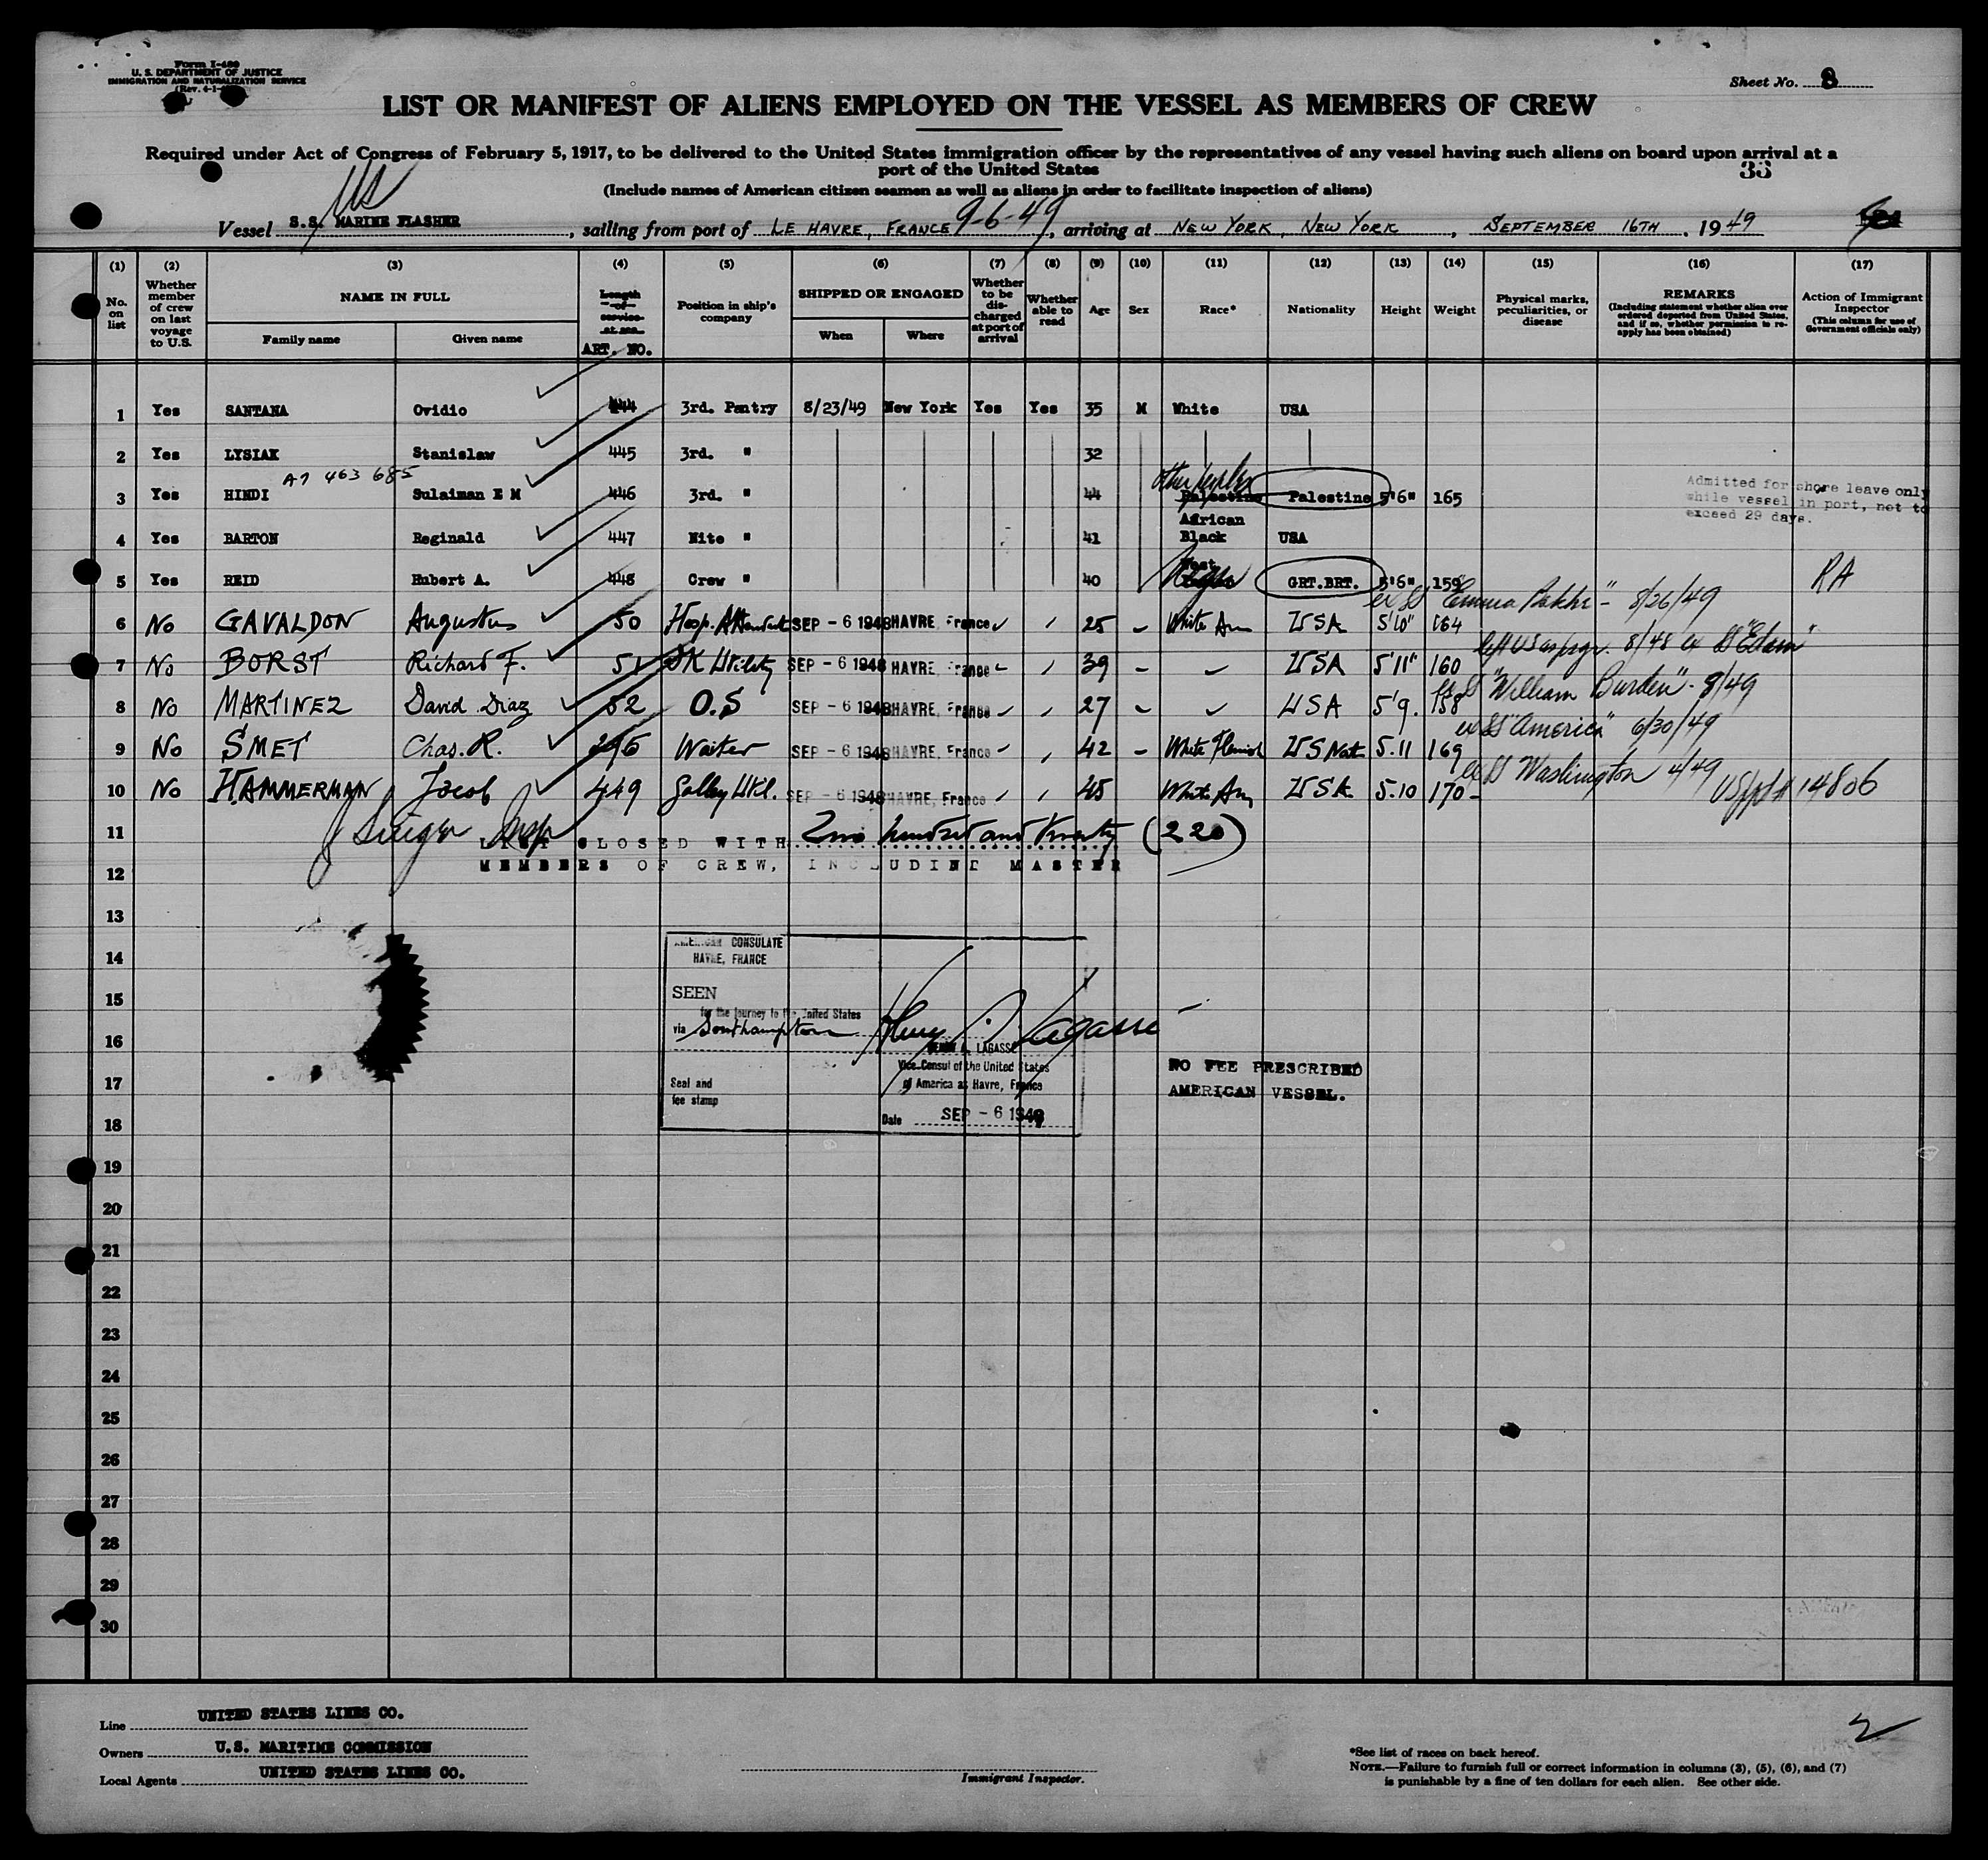 Form I-489
U. S. DEPARTMENT OF JUSTICE
IMMIGRATION AND NATURALIZATION SERVICE
Sheet No. 8
LIST OR MANIFEST OF ALIENS EMPLOYED ON THE VESSEL AS MEMBERS OF CREW
Required under Act of Congress of February 5, 1917, to be delivered to the United States immigration officer by the representatives of any vessel having such aliens on board upon arrival at a
port of the United States
33
(Include names of American citizen seamen as well as aliens in order to facilitate inspection of aliens)
US
Vessel S.S. MARINE FLASHER, sailing from port of LE HAVRE, FRANCE 9-6-49, arriving at NEW YORK, NEW YORK, SEPTEMBER 16TH, 1949
(1) (2) (3) (4) (5) (6) (7) (8) (9) (10) (11) (12) (13) (14) (15) (16) (17)
No. on list
Whether member of crew on last voyage to U.S.
NAME IN FULL
Family name
Given name
Length of service at sea
ART. NO.
Position in ship's company
SHIPPED OR ENGAGED
When
Where
Whether to be discharged at port of arrival
Whether able to read
Age
Sex
Race*
Nationality
Height
Weight
Physical marks, peculiarities, or disease
REMARKS
(Including statement whether alien ever ordered deported from United States, and if so, whether permission to reapply has been obtained)
Action of Immigrant Inspector
(This column for use of Government officials only)
1 Yes SANTANA Ovidio 444 3rd. Pantry 8/23/49 New York Yes Yes 35 M White USA
2 Yes LYSIAK Stanislaw 445 3rd. " 32
A7 463 685
3 Yes HINDI Sulaiman E M 446 3rd. " 44 Palestine Palestine 5'6" 165
Admitted for shore leave only
while vessel in port, not to
exceed 29 days.
4 Yes BARTON Reginald 447 Nite " 41 African Black USA
5 Yes REID Hubert A. 448 Crew " 40 West GRT.BRT. 5'6" 159 RA
6 No GAVALDON Augustus 50 Hosp. Attendant SEP - 6 1948 HAVRE, France 25 White Am USA 5'10" 164 ex SS "Emma - 8/26/49
7 No BORST Richard F. 51 Utility SEP - 6 1948 HAVRE, France 39 USA 5'11" 160 left US 8/48 ex SS
8 No MARTINEZ David Diaz 52 O.S SEP - 6 1948 HAVRE, France 27 USA 5'9. 158 ex SS "William Burden" - 8/49
9 No SMET Chas. R. Waiter SEP - 6 1948 HAVRE, France 42 White Flemish US Nat 5.11 169 ex SS "America" 6/30/49
10 No HAMMERMAN Jacob 449 Galley Util. SEP - 6 1948 HAVRE, France 45 White Am USA 5-10 170 ex SS Washington 4/49 14806
11 LIST CLOSED WITH Two hundred and twenty (220)
12 MEMBERS OF CREW, INCLUDING MASTER
13
14
15
16
17
18
19
20
21
22
23
24
25
26
27
28
29
30
AMERICAN CONSULATE
HAVRE, FRANCE
SEEN
for the journey to the United States
via Southampton
Henry A. Lagasse
HENRY A. LAGASSE
Vice-Consul of the United States
of America at Havre, France
Seal and
fee stamp
Date SEP - 6 1949
NO FEE PRESCRIBED
AMERICAN VESSEL.
Line UNITED STATES LINES CO.
Owners U.S. MARITIME COMMISSION
Local Agents UNITED STATES LINES CO.
Immigrant Inspector.
2
*See list of races on back hereof.
NOTE.—Failure to furnish full or correct information in columns (3), (5), (6), and (7)
is punishable by a fine of ten dollars for each alien. See other side.